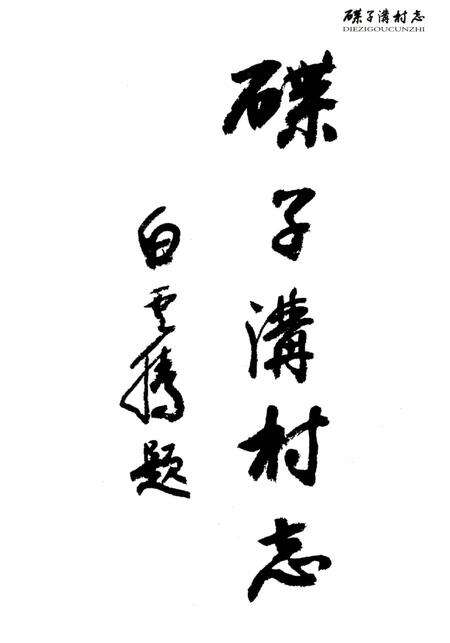 碟子溝村志
DIEZIGOUCUNZHI
碟子溝村志
白雲騰題